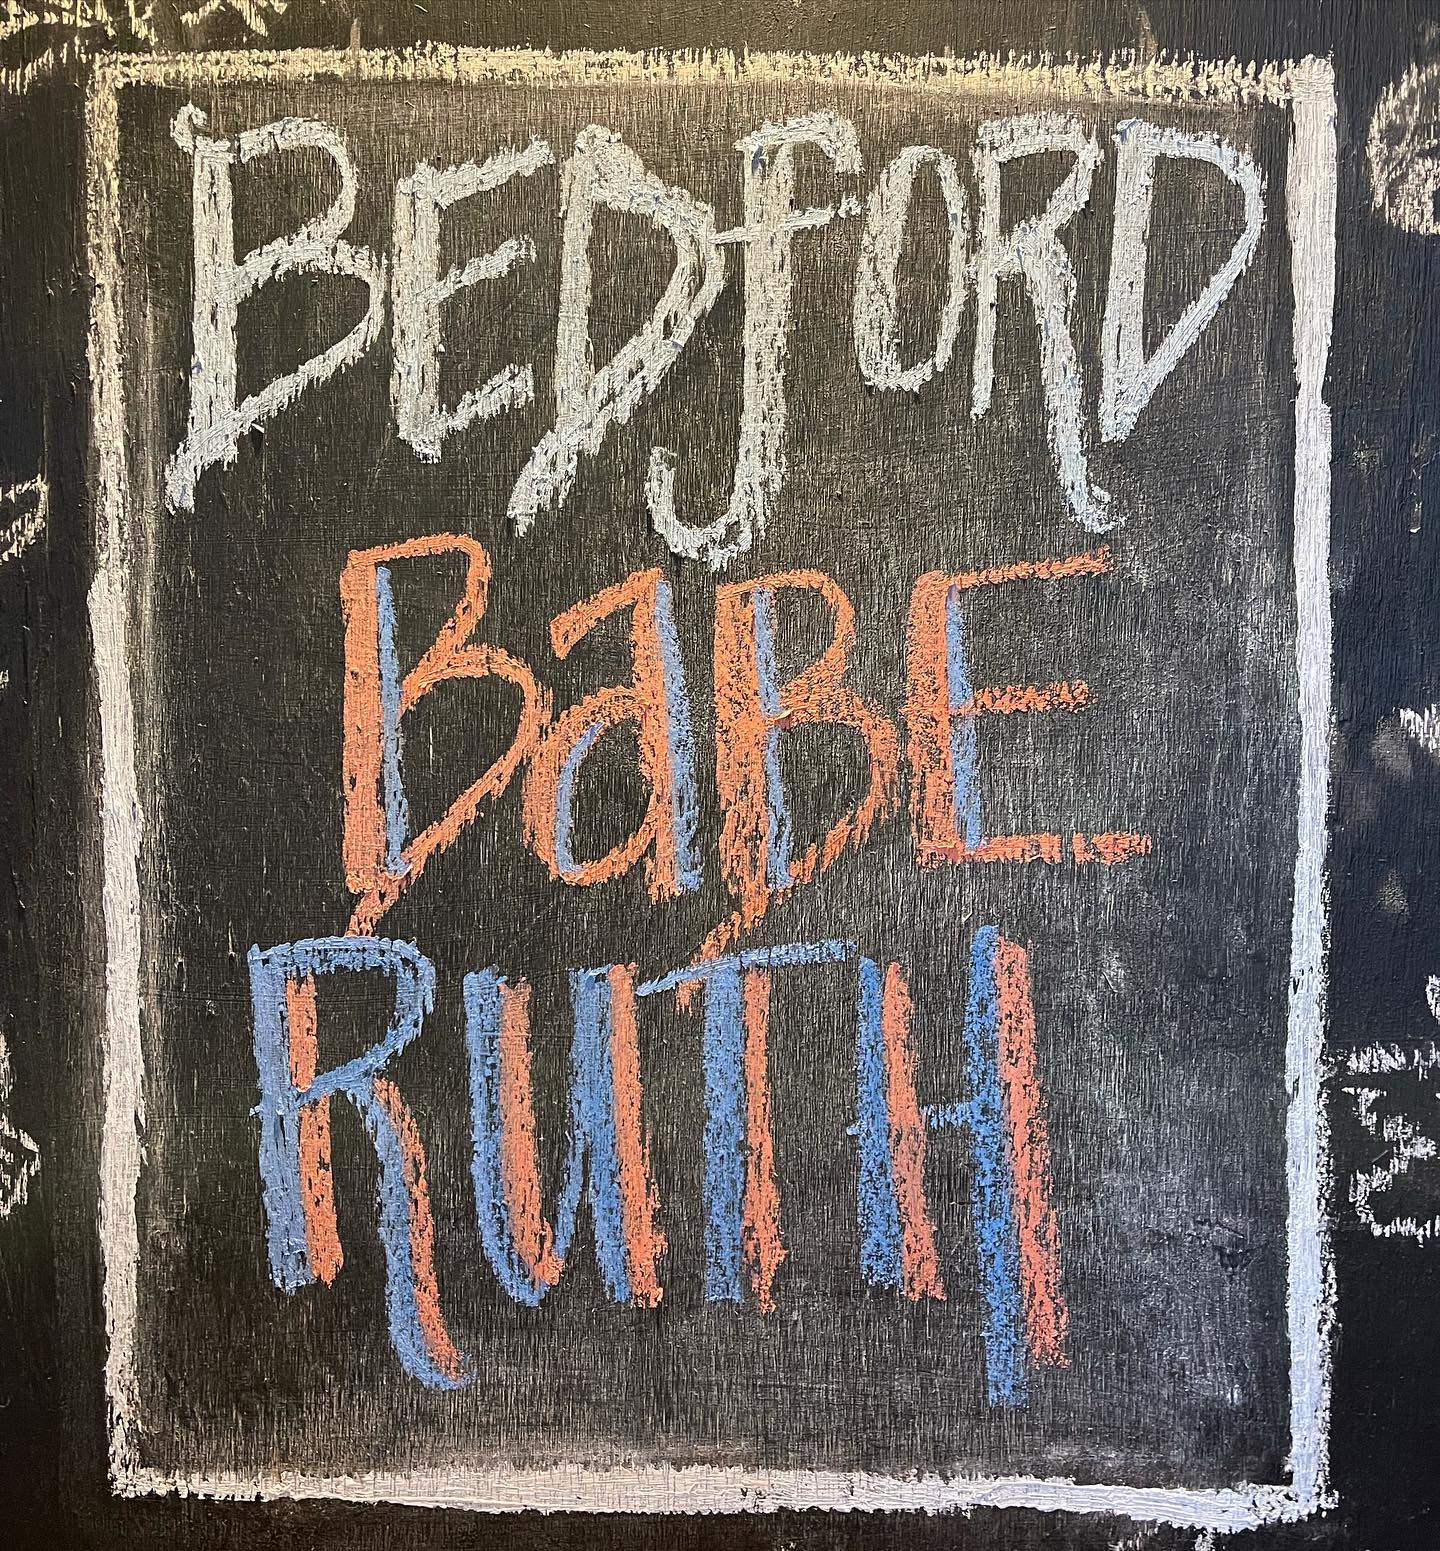 BEDfORD
BaBE
RUTH